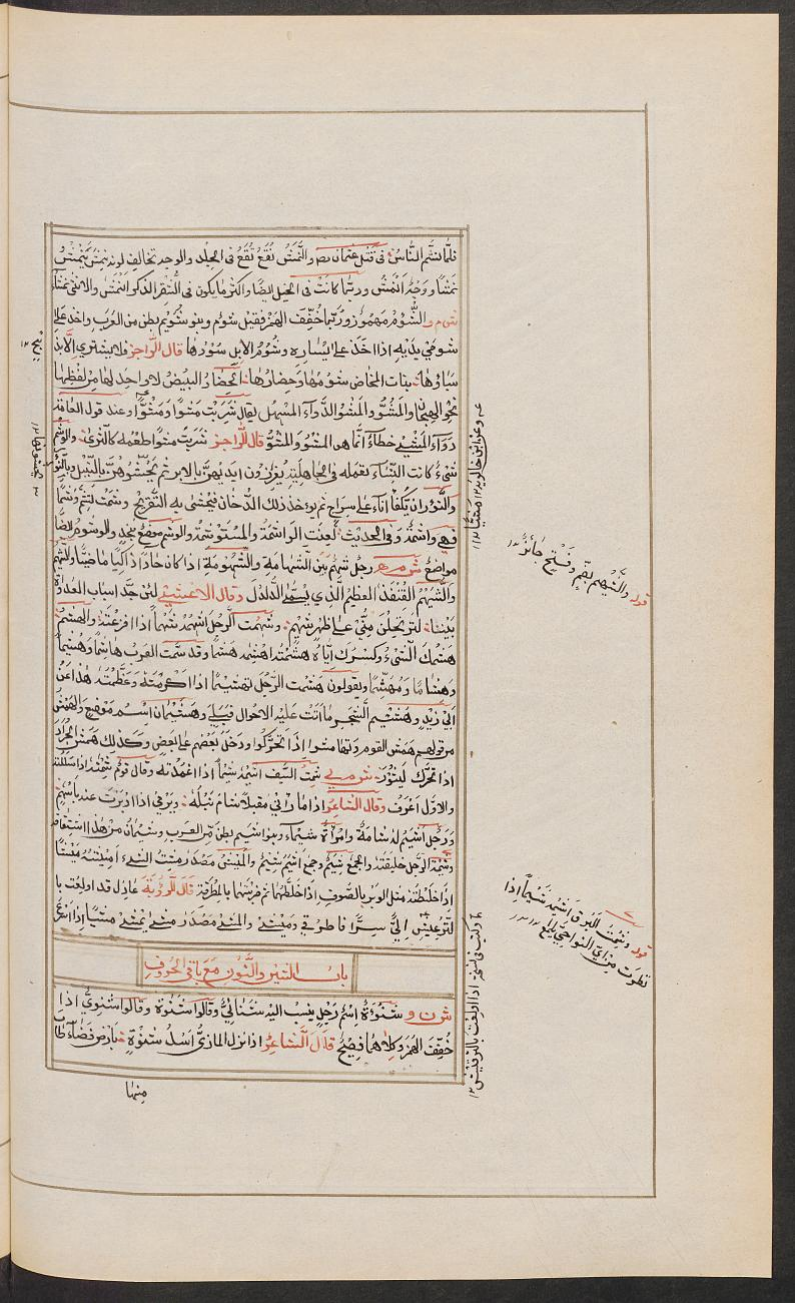 فلمّا نشّم النّاسُ في قتل عثمان والنَّمَشُ نُقَعٌ تَقَعُ في الجلد والوجه تخالف لونه نَمِشَ يَنْمَشُ
نَمَشًا ووجهٌ أنمش وربّما كانت في الخيل أيضا وأكثر ما يكون في الشُّقر الذكر أنمش والأنثى نمشاء
ش م و والشُّؤم مهموز وربّما خُفّف الهمز فقيل شوم وبنو شُؤَيم بطن من العرب وأخذ على
شومى يديه إذا أخذ على يساره وشُومُ الإبل سُودُها قال الراجز فلا يشترى إلّا
سباؤها بنات المخاض شومها وحضارها الحضار البيض لا واحد لها من لفظها
نحو الهجان والمَشُوُّ والمَشْوُ الدّواء المسهل يقال شربت مَشْوًا ومَشُوًّا وعند قول العامّة
دواء المَشْي خطأ إنّما هو المَشْوُ والمَشُوُّ قال الراجز شربت مشوًّا طعمه كالشرى والوشم
شيء كانت النساء تعمله في الجاهلية يغرزن أيديهنّ بالإبر ثم يحشوهنّ بالنِّيل وبالنَّؤُور
والنَّؤُور أن يُكفأ إناء على سراج ثم يؤخذ ذلك الدّخان فيُحشى به التقريح وشمت تشم وشما
فهي واشمة وفي الحديث لُعنت الواشمة والمستوشمة والوشم موضع بنجد والوشوم أيضا
مواضع ش م ه رجل شهم بيّن الشهامة والشُّهومة إذا كان حادًّا ذكيّا ماضيًا
والشَّيْهم القنفذ العظيم الذي يسمّى الدّلدل وقال الأعشى لئن جدّ أسباب العداوة
بيننا لترتحلن منّي على ظهر شيهم وشهمت الرجل أشهمه شهما إذا أفزعته والهشم
هشمك الشيء وكسرك إيّاه هشمته أهشمه هشما وقد سمّت العرب هاشما وهُشيما
وهشاما ومهشما ويقولون هشمت الرجل تهشيما إذا أكرمته وعظّمته هذا عن
أبي زيد وهشيم الشجر ما أتت عليه الأحوال فيبلى وهشيمان اسم موضع والهمش
من قولهم همش القوم وتهامشوا إذا تحرّكوا ودخل بعضهم على بعض وكذلك همش الجراد
إذا تحرّك ليثور ش م ي شِمتُ السّيف أشيمه شيما إذا أغمدته وقال قوم شمته إذا سللته
والأوّل أعرف وقال الشاعر إذا ما رآني مقبلا شام نبله ويرمي إذا أدبرت عنه بأسهم
ورجل أشيم له شامة وامرأة شيماء وبنو أشيم بطن من العرب وشيمان من هذا اشتقاقه
وشيمة الرجل خليقته والجمع شيم وجمع أشيم شيم والميش مصدر مِشتُ الشيء أميشه ميشا
إذا خلطته مثل الوبر بالصوف إذا خلطتهما ثم ضربتهما بالمطرقة قال رؤبة عاذل قد أولعت با
لترعيش إليّ سرًّا فاطرقي وميشي والمشي مصدر مشى يمشي مشيا
باب الشين والنون مع باقي الحروف
ش ن و شنوءة اسم رجل ينسب إليه شنائيّ وقالوا شنوة وقالوا شنويّ إذا
خُفّف الهمز وكلاهما فصيح قال الشاعر إذا نزل المازي أسد شنوة بأرض فضاء طاب
منها
قوله والشيهم بضم وفتح جائز ١٢
قوله وشمت البرق أشيمه شيما إذا
نظرت من أيّ النواحي يلمع ١٢